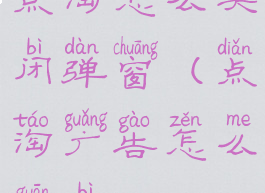 点淘怎么关
bì dàn chuāng diǎn
闭弹窗（点
táo guǎng gào zěn me
淘广告怎么
guān bì